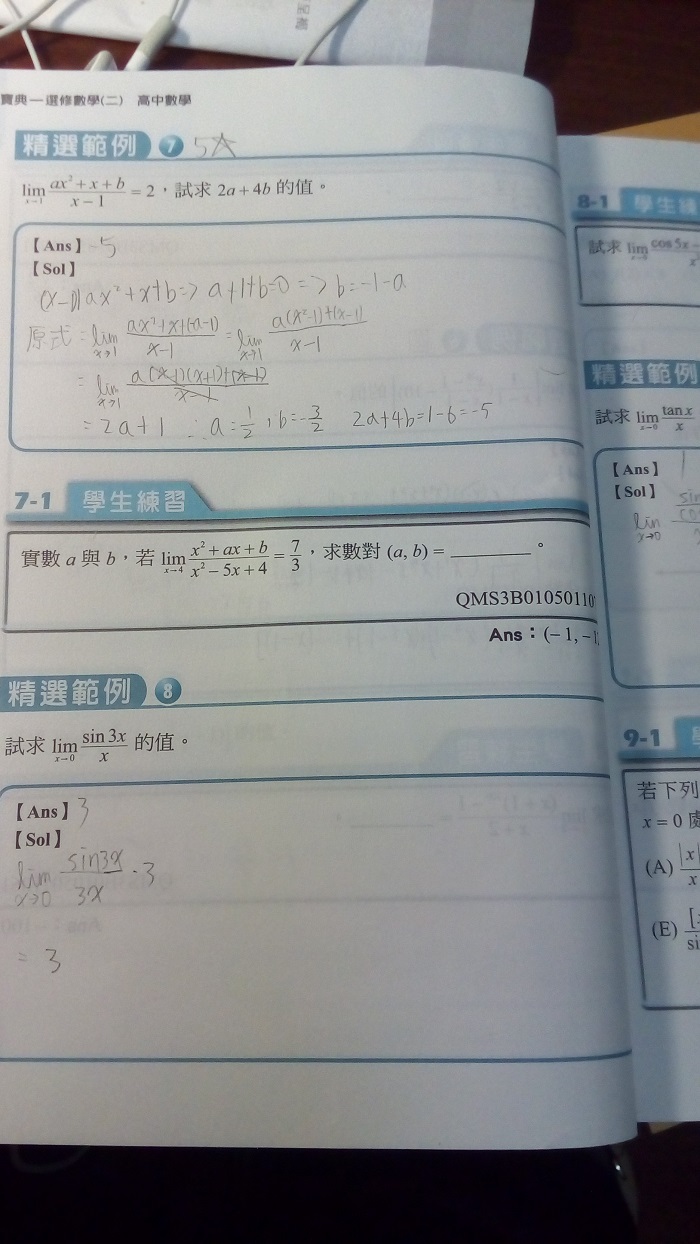 寶典—選修數學(二) 高中數學
精選範例 7 5☆
lim x→1 (ax² + x + b)/(x − 1) = 2，試求 2a + 4b 的值。
【Ans】-5
【Sol】
(x-1)|ax²+x+b => a+1+b=0 => b=-1-a
原式 = lim x→1 (ax²+x+(-a-1))/(x-1) = lim x→1 (a(x²-1)+(x-1))/(x-1)
= lim x→1 (a(x-1)(x+1)+(x-1))/(x-1)
= 2a+1 ∴ a=1/2, b=-3/2 2a+4b=1-6=-5
7-1 學生練習
實數 a 與 b，若 lim x→4 (x² + ax + b)/(x² − 5x + 4) = 7/3，求數對 (a, b) = ________ 。
QMS3B01050110
Ans：(−1, −1
精選範例 8
試求 lim x→0 sin 3x/x 的值。
【Ans】3
【Sol】
lim x→0 sin3x/3x · 3
= 3
8-1 學生練
試求 lim x→0 cos 5x −
精選範例
試求 lim x→0 tan x/x
【Ans】1
【Sol】
lim x→0 sin
9-1
若下列
x = 0 處
(A) |x|/x
(E) [
si